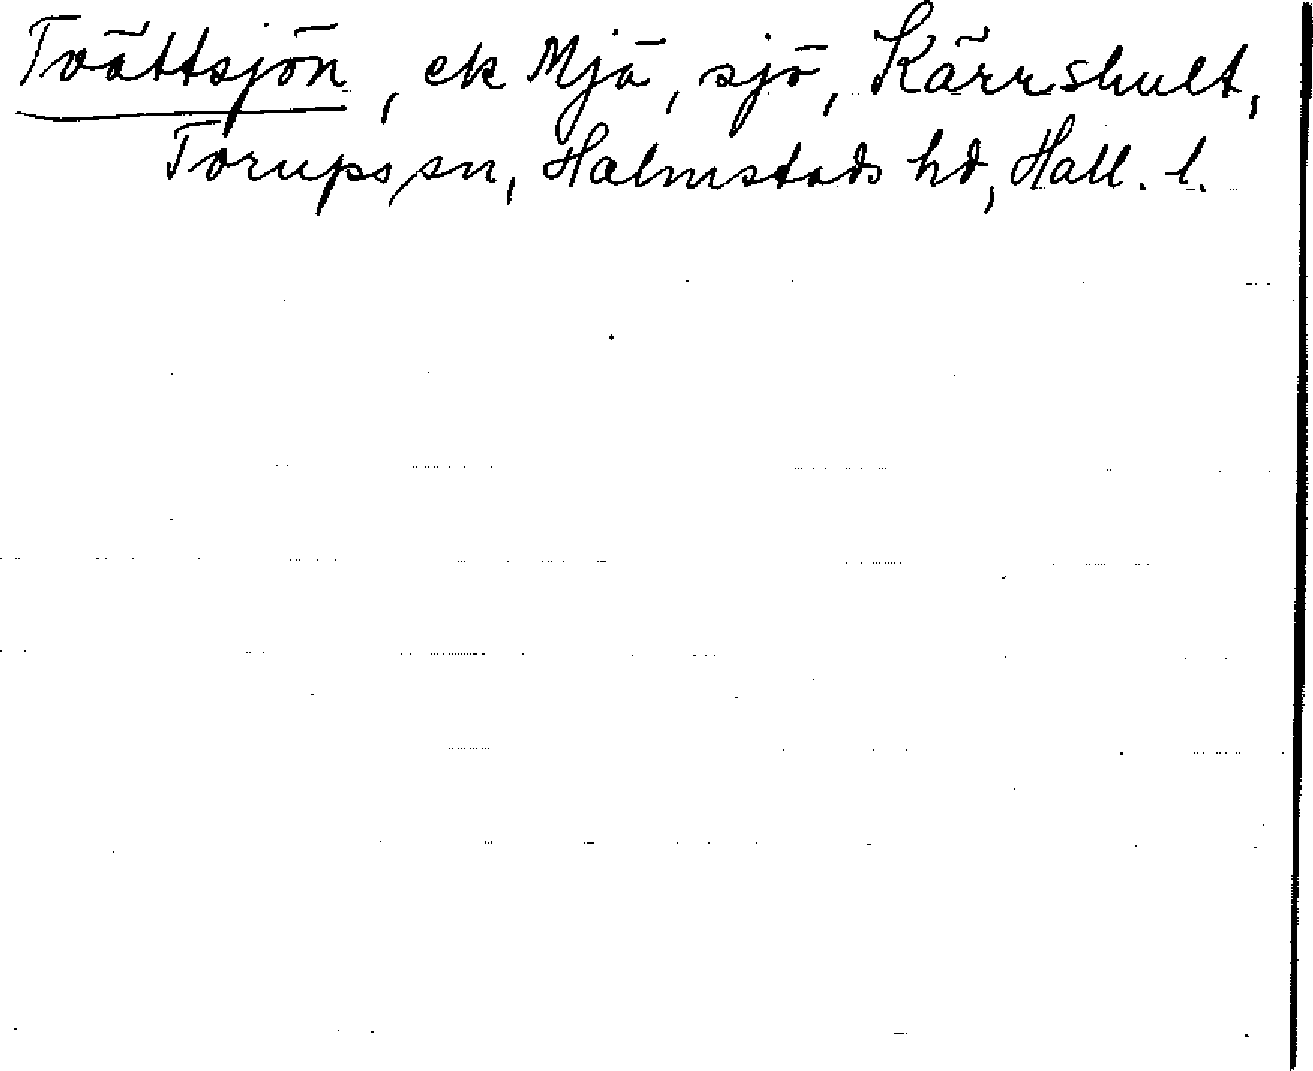 Tvättsjön, ek Mjä, sjö, Kärrshult,
Torups sn, Halmstads hd, Hall. l.